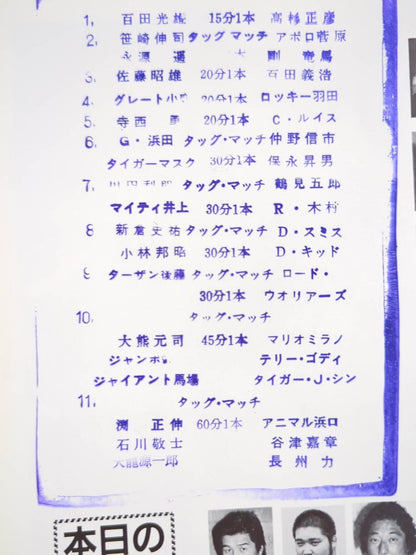 1, 百田光雄 15分1本 高杉正彦
2, 笹崎伸司 タッグマッチ アポロ菅原
永源 遥 本 剛 竜馬
3, 佐藤昭雄 20分1本 百田義浩
4, グレート小鹿 20分1本 ロッキー羽田
5, 寺西 勇 20分1本 C・ルイス
6, G・浜田 タッグ・マッチ 仲野信市
タイガーマスク 30分1本 保永昇男
7, 川田利明 タッグ・マッチ 鶴見五郎
マイティ井上 30分1本 R・木村
8 新倉史祐 タッグ・マッチ D・スミス
小林邦昭 30分1本 D・キッド
9 ターザン後藤 タッグ・マッチ ロード・
30分1本 ウオリアーズ
10, タッグ・マッチ
大熊元司 45分1本 マリオミラノ
ジャンボ テリー・ゴディ
ジャイアント馬場 タイガー・J・シン
11, タッグ・マッチ
渕 正伸 60分1本 アニマル浜口
石川敬士 谷津嘉章
天龍源一郎 長州 力
本日の